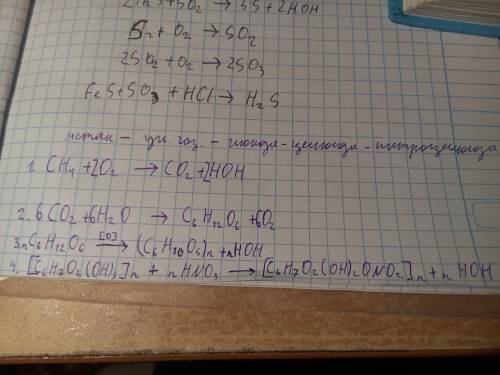 + SO₂ → 3S + 2HOH
S₂ + O₂ → SO₂
2SO₂ + O₂ → 2SO₃
FeS + SO₃ + HCl → H₂S
метан – уг. газ. – глюкоза – целлюлоза – нитроцеллюлоза
1. CH₄ + 2O₂ → CO₂ + 2HOH
2. 6CO₂ + 6H₂O → C₆H₁₂O₆ + 6O₂
3. nC₆H₁₂O₆ [O]→ (C₆H₁₀O₅)n + nHOH
4. [C₆H₇O₂(OH)₃]n + nHNO₃ → [C₆H₇O₂(OH)₂ONO₂]n + nHOH